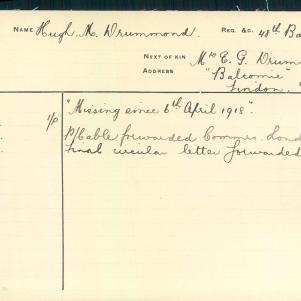 NAME Hugh M. Drummond. REG. &C. 48th Ba
NEXT OF KIN Mrs E. G. Drum
ADDRESS "Balcomie"
Lindon.
1/p "Missing since 6th April 1918".
P/Cable forwarded Commrs. Lond
final circular letter forwarded